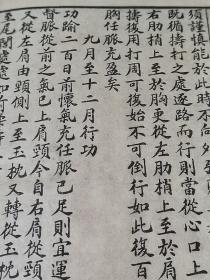 須謹慎能於此時不尚外
既循擣打之處逐路而行則當從心口上
右肋梢上至於胸更從左肋梢上至於肩
擣後用打周可復始不可倒行如此復百
胸任脈充盈矣
九月至十二月行功
功踰二百日前懷氣充任脈已足則宜運
督脈從前之氣已上肩頸今自右肩從頸
又從左肩由頸側上至玉枕又轉從玉枕
至尾閭處處如前